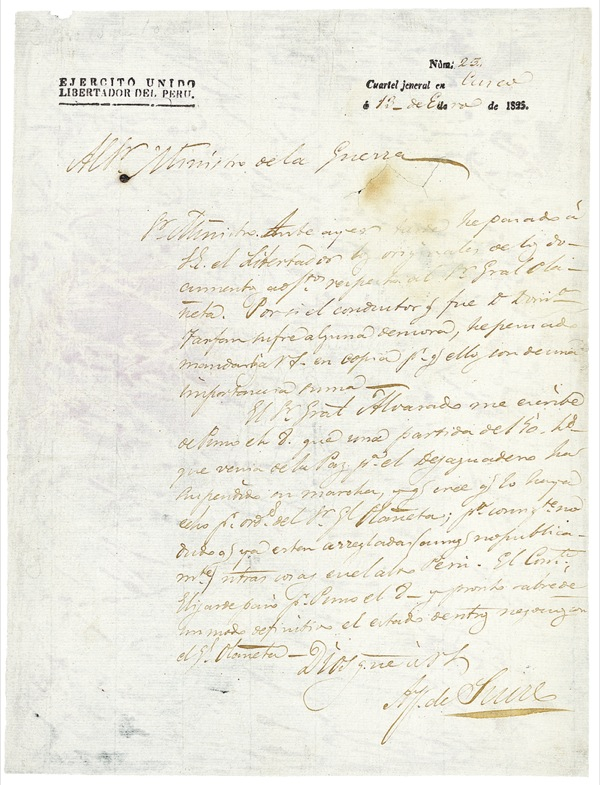 EJERCITO UNIDO
LIBERTADOR DEL PERU.
Núm. 23.
Cuartel jeneral en Cuzco
á 12 de Enero de 1825.
Al Sr. Ministro de la Guerra
Sr. Ministro. Ante ayer he pasado á
S.E. el Libertador los originales de los do-
cumentos respecto al Sr. Gral Ola-
ñeta. Por si el conductor q. fue D. Domo.
Farfan sufre alguna demora, he pensado
mandarlos á V.S. en copia pr. q. ellos son de una
importancia suma
El Sr. Gral Alvarado me escribe
de Puno el 8. que una partida de
que venia de la Paz pa. el Desaguadero ha
suspendido su marcha, y q. cree q. lo haya
echo pr. orden. del Sr. Gl. Olañeta;
dudo q. ya estan arregladas (aunq. no publica-
mte.) ntras cosas en el alto Perú. El Comte.
Elizalde pasó pr. Puno el 8 y pronto sabré de
un modo definitivo el estado de ntros negocios con
el Gl. Olañeta
Dios gue. á V.S.
A. J. de Sucre